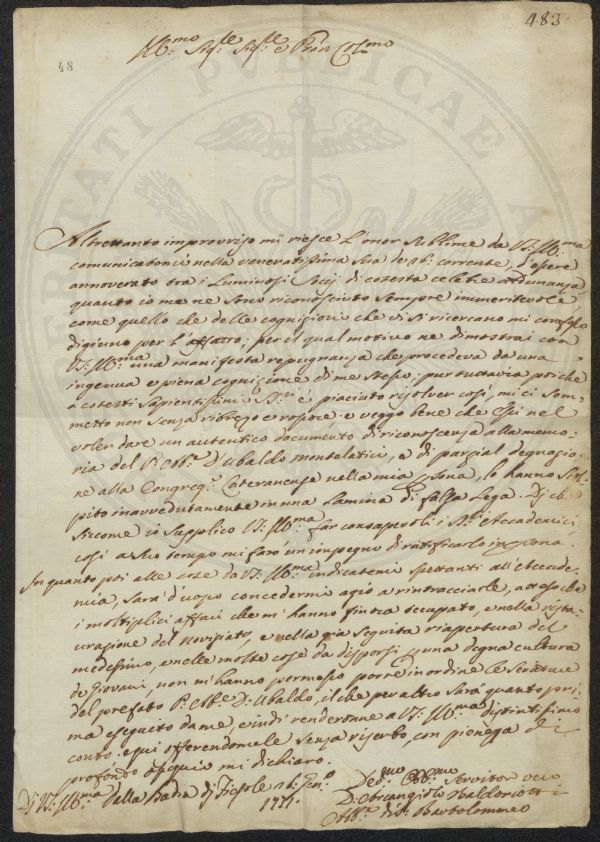 483
48
Ill:mo Sig:re Sig:re e Pron Col:mo
Altrettanto improvviso mi riesce l'onor sublime da V:S: Ill:ma
comunicatomi nella veneratissima Sua de 26: corrente, d'essere
annoverato tra i Luminosi Socij di cotesta celebre Adunanza
quanto io me ne sono riconosciuto sempre immeritevole
come quello che delle cognizioni che vi si ricercano mi confesso
digiuno per l'affatto; per il qual motivo ne dimostrai con
V:S: Ill:ma una manifesta repugnanza che procedeva da una
ingenua e piena cognizione di me stesso; pur tuttavia poiche
a cotesti Sapientissimi SS:ri è piaciuto risolver così, mi ci som-
metto non senza ribrezo e ropore: e veggo bene che essi nel
voler dare un autentico documento di riconoscenza alla memo-
ria del P: Abb:e D: Ubaldo Montelatici, e di parzial degnazio-
ne alla Congreg:e Lateranense nella mia psona, lo hanno scol-
pito inavvedutamente in una Lamina di falsa Lega. Di che
siccome io supplico V:S: Ill:ma far consapevoli i SS:ri Accademici
così a suo tempo mi farò un impegno di ratificarlo in psona
In quanto poi alle cose da V:S: Ill:ma indicatemi spettanti all'Accade-
mia, sarà d'uopo concedermi agio a rintracciarle, attesoche
i moltiplici affari che m'hanno finora occupato, e nella ristau-
razione del Noviziato, e nella già seguita riapertura del
medesimo, e nelle molte cose da disporsi p una degna cultura
de Giovani, non m'hanno permesso porre in ordine le scritture
del prefato P: Abb:e D: Ubaldo, il che per altro sarà quanto pri-
ma eseguito da me, e indi renderonne a V:S: Ill:ma distintissimo
conto: e qui offerendomele senza riserbo, con pienezza di
profondo ossequio mi dichiaro.
Di V:S: Ill:ma Dalla Badia di Fiesole 26: Gen:o
1771.
Dev:mo Obb:mo Servitor vero
D: Arcangiolo Baldoriotti
Abb:e di S: Bartolommeo